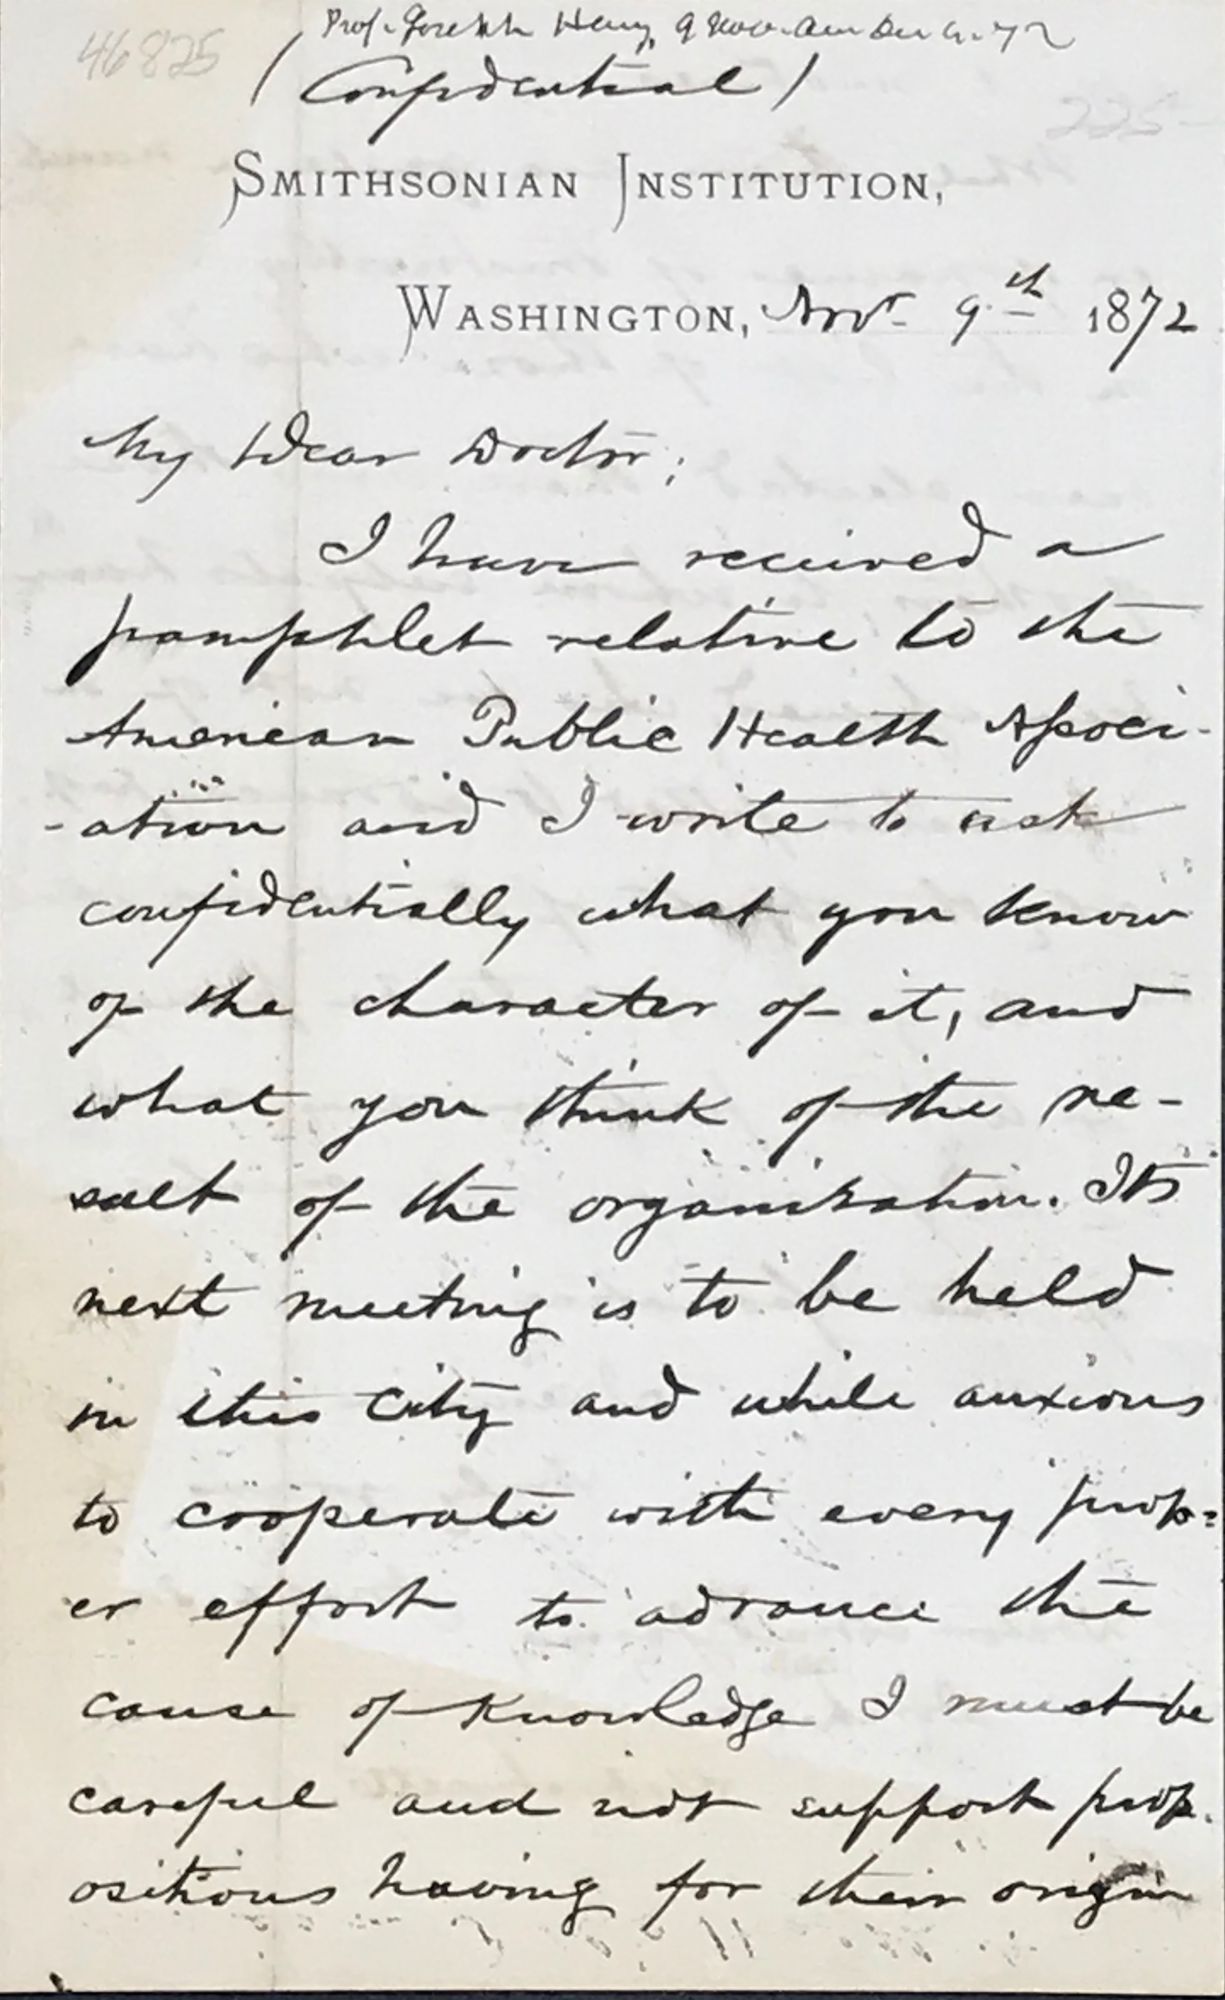 46825
Prof. Joseph Henry, 9 Nov. Ans Dec 4. 72
(Confidential)
225-
SMITHSONIAN INSTITUTION,
WASHINGTON, Nov. 9th 1872
My Dear Doctor;
I have received a
pamphlet relative to the
American Public Health Associ-
-ation and I write to ask
confidentially what you know
of the character of it, and
what you think of the re-
sult of the organization. Its
next meeting is to be held
in this city and while anxious
to cooperate with every prop=
er effort to advance the
cause of knowledge I must be
careful and not support prop.
ositions having for their origin